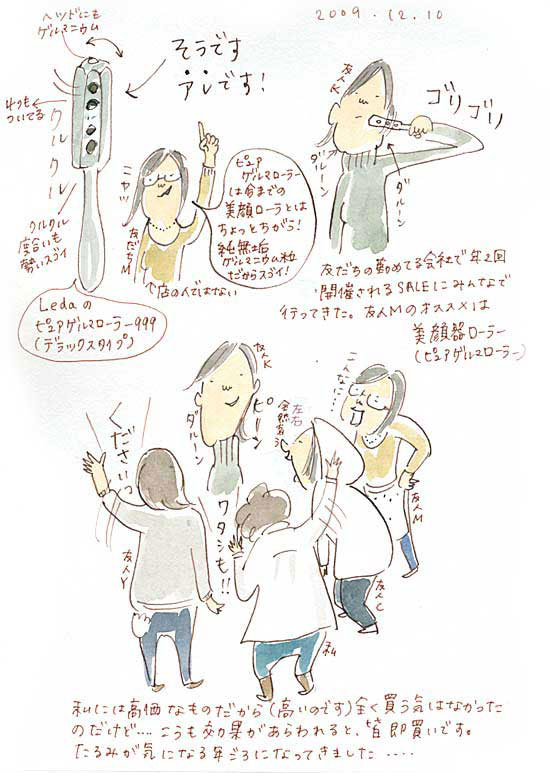 2009.12.10
ヘッドにも
ゲルマニウム
そうです
アレです!
4つも
ついてる
クルクル
クルクル
度合いも
勢いスゴイ
Ledaの
ピュアゲルマローラー999
(デラックスタイプ)
ニヤッ
友だちM
ピュア
ゲルマローラー
は今までの
美顔ローラとは
ちょっとちがう!
純無垢
ゲルマニウム粒
だからスゴイ!
↑店の人ではない
友人K
ゴリゴリ
ダルーン
ダルーン
友だちの勤めてる会社で年2回
開催されるSALEにみんなで
行ってきた。友人Mのオススメは
美顔器ローラー
(ピュアゲルマローラー)
友人K
ピーン
ダルーン
左右
全然違う
くださいっ
ワタシも!!
友人Y
私
友人C
友人M
私には高価なものだから(高いのです)全く買う気はなかった
のだけど....こうも効果があらわれると、皆即買いです。
たるみが気になる年ごろになってきました.....